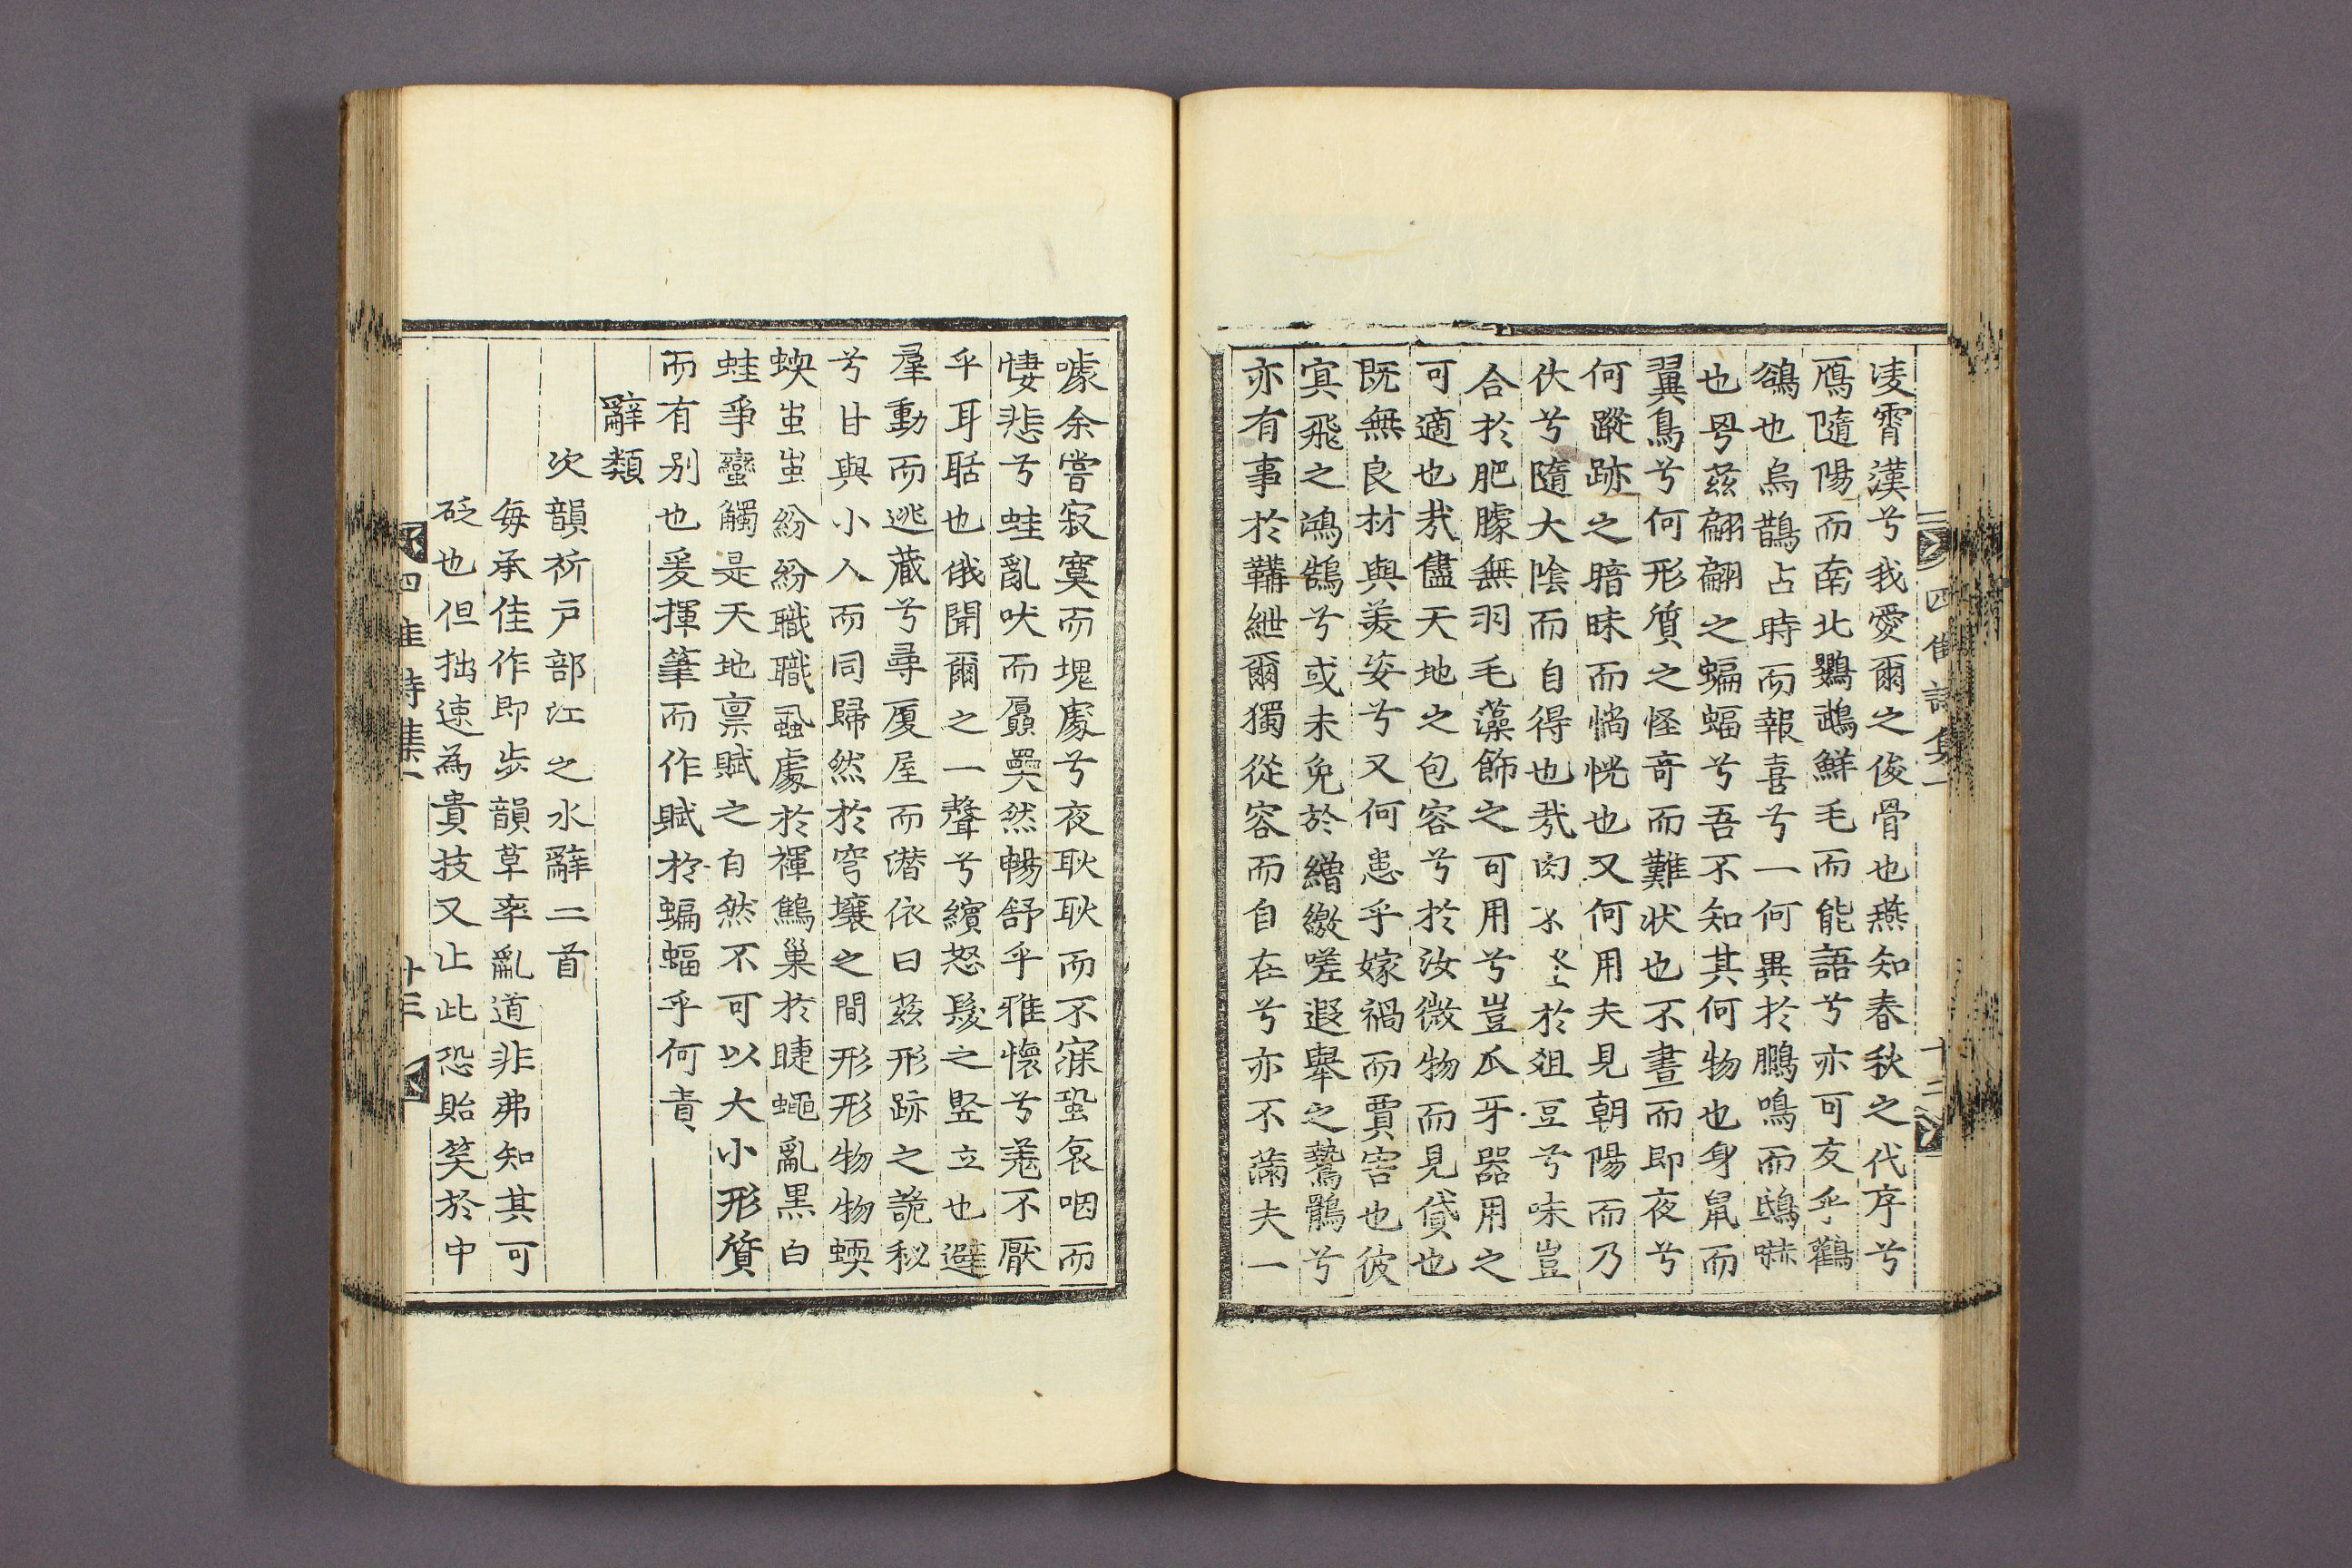 凌霄漢兮我愛爾之俊骨也燕知春秋之代序兮
鴈隨陽而南北鸚鵡鮮毛而能語兮亦可友乎鸛
鵒也烏鵲占時而報喜兮一何異於鵬鳴而鴟嚇
也咢茲翩翩之蝙蝠兮吾不知其何物也身鼠而
翼鳥兮何形質之怪奇而難狀也不晝而即夜兮
何蹤跡之暗昧而惝恍也又何用夫見朝陽而乃
伏兮隨大陰而自得也㦲肉不登於俎豆兮味豈
合於肥䑃無羽毛藻飾之可用兮豈爪牙器用之
可適也㦲儘天地之包容兮於汝微物而見貸也
既無良材與美姿兮又何患乎嫁禍而賈害也彼
㝠飛之鴻鵠兮或未免於繒繳嗟遐舉之鷙鶻兮
亦有事於韝紲爾獨從容而自在兮亦不滿夫一
四隹詩集一 十二
噱余嘗寂寞而塊處兮夜耿耿而不寐蛩哀咽而
悽悲兮蛙亂吠而贔奰然暢舒乎雅懷兮羗不厭
乎耳聒也俄聞爾之一聲兮繽怒髮之竪立也避
羣動而逃藏兮尋厦屋而潜依曰茲形跡之詭秘
兮甘與小人而同歸然於穹壤之間形形物物蝡
蝡蚩蚩紛紛職職蝨處於褌鷦巢於睫蠅亂黒白
蛙爭蠻觸是天地禀賦之自然不可以大小形質
而有别也爰揮筆而作賦於蝙蝠乎何責
辭類
次韻祈戶部江之水辭二首
每承佳作即步韻草率亂道非弗知其可
砭也但拙速為貴技又止此恐貽笑於中
四隹詩集一 十三